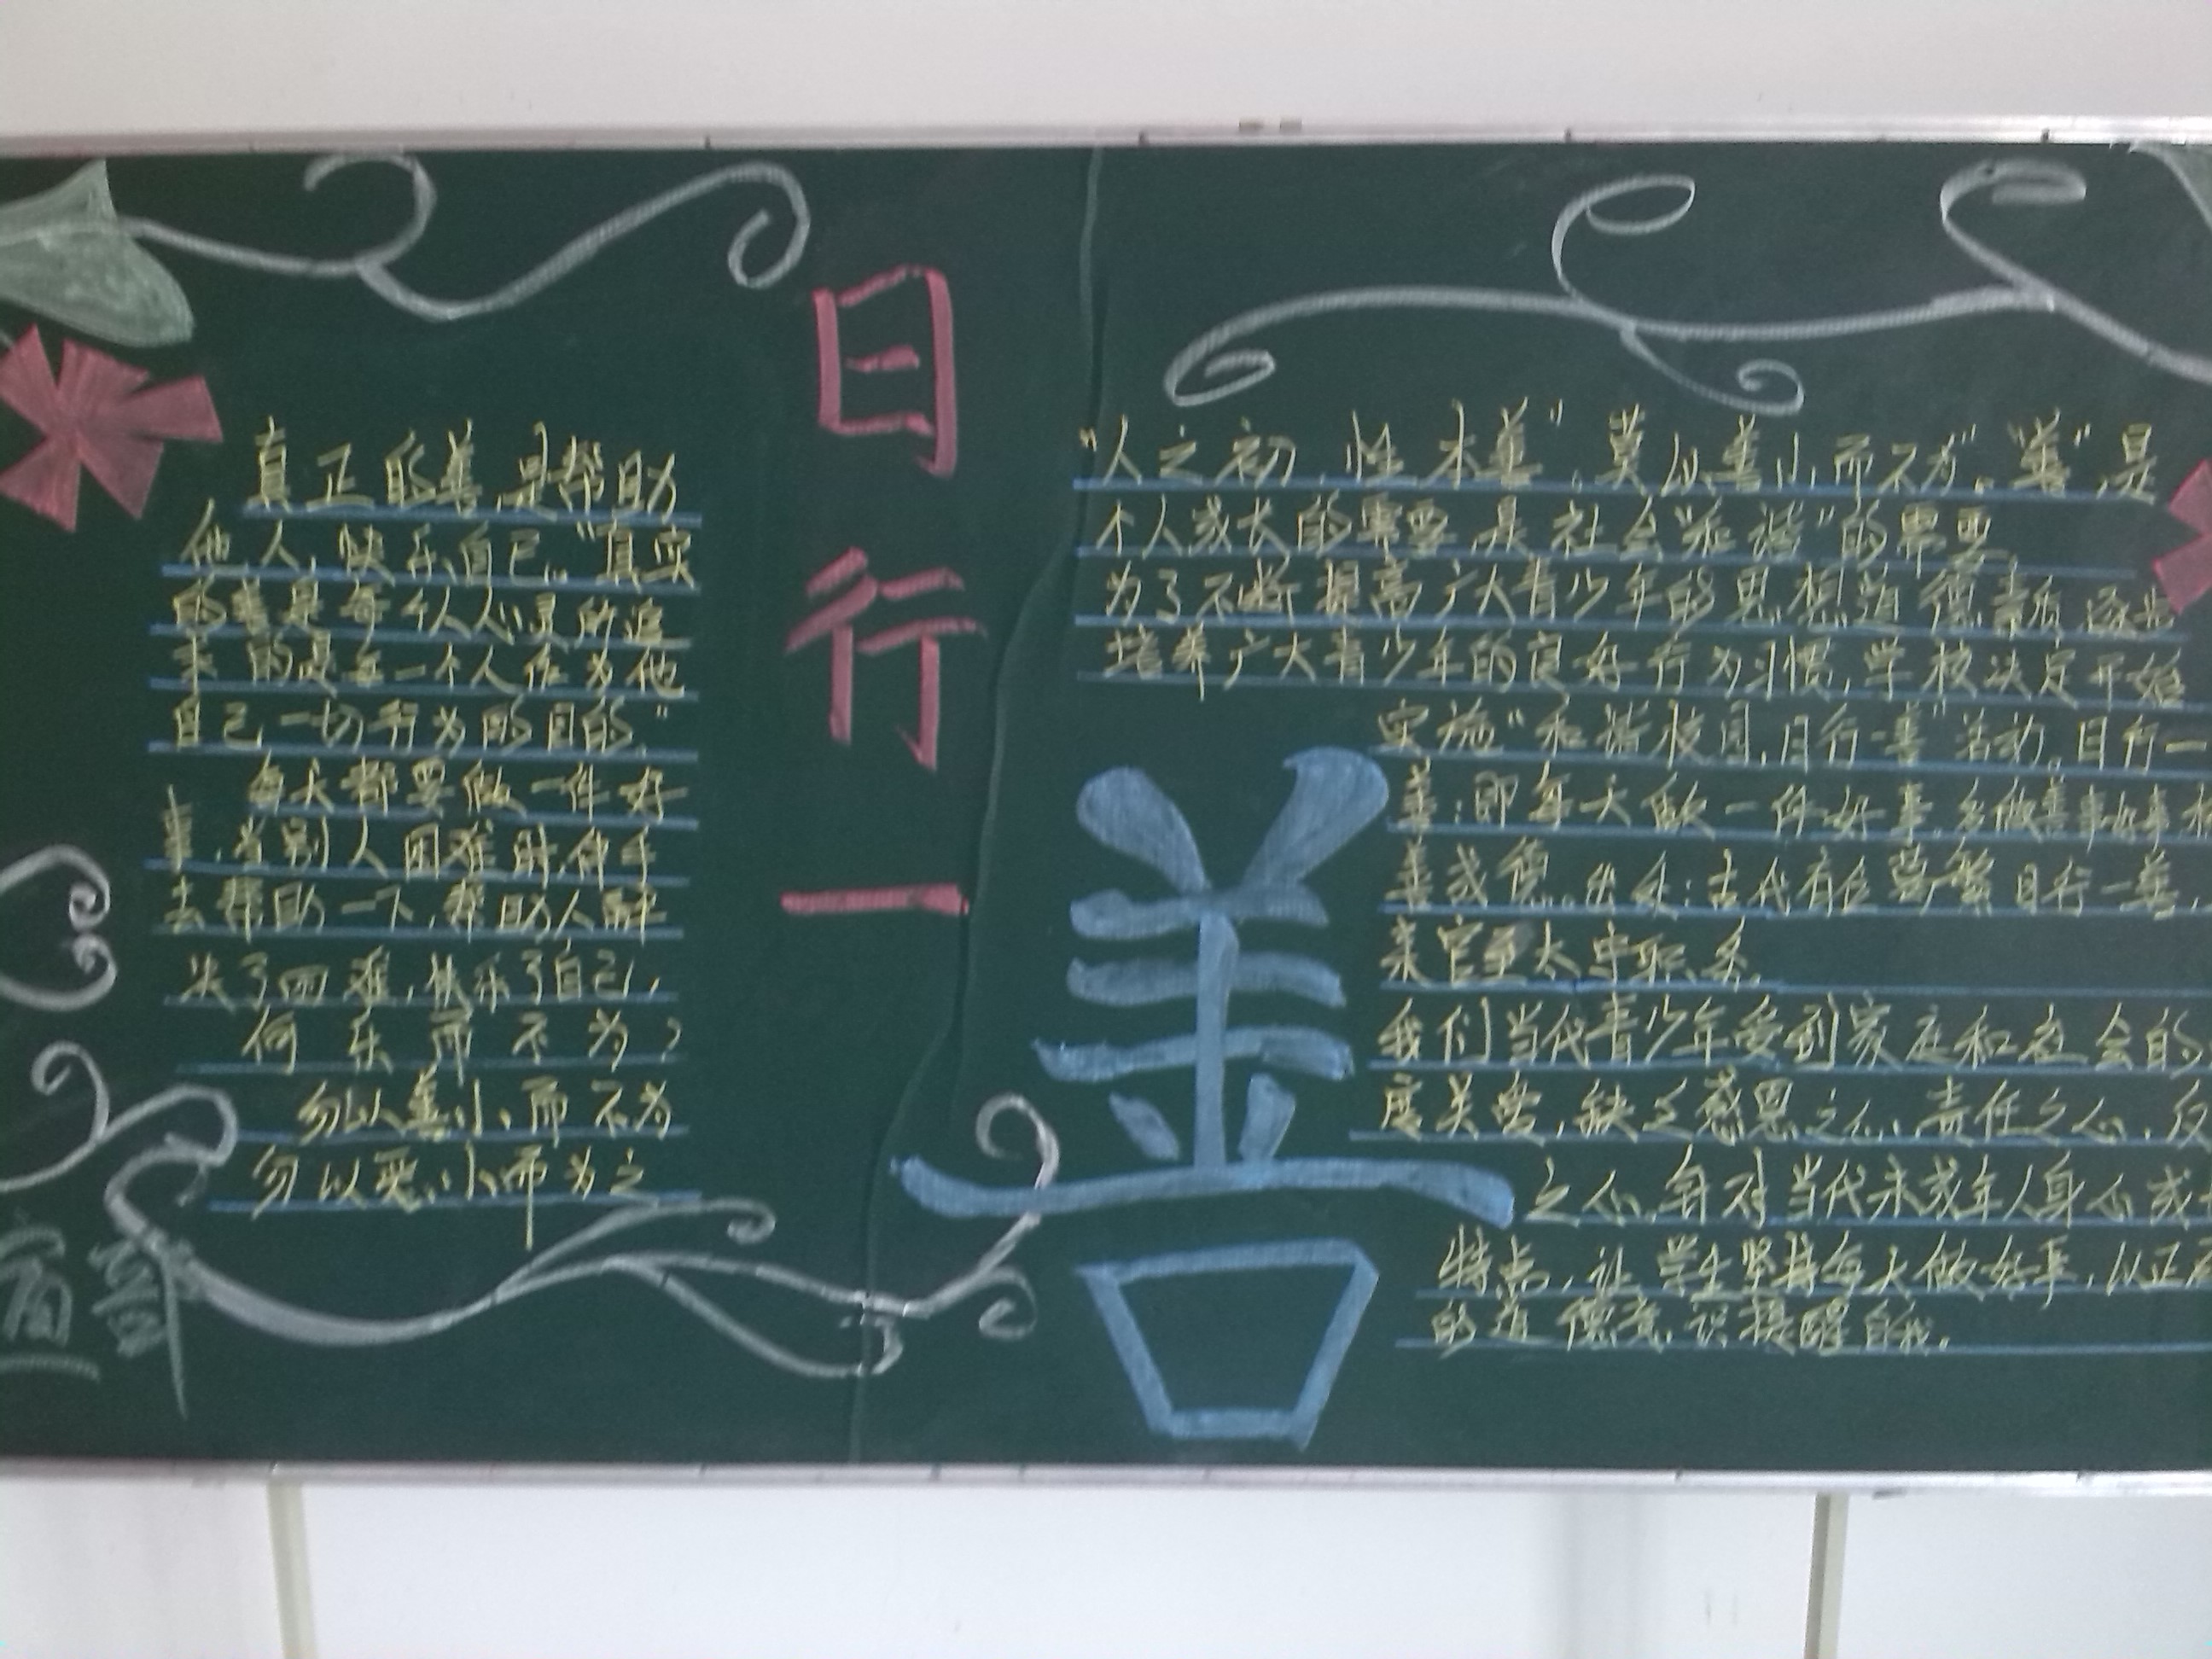 日行一
善
真正的善是帮助
他人,快乐自己。"真实
的善是每个人心灵所追
求的是每一个人作为他
自己一切行为的目的。"
每天都要做一件好
事,当别人困难时,伸手
去帮助一下,帮助人解
决了困难,快乐了自己,
何乐而不为?
勿以善小而不为
勿以恶小而为之
"人之初,性本善",莫以善小而不为"。"善",是
个人成长的需要,是社会"和谐"的需要。
为了不断提高广大青少年的思想道德素质,逐步
培养广大青少年的良好行为习惯,学校决定开始
实施"和谐校园,日行一善"活动。日行一
善:即每天做一件好事,多做善事好事积
善成德。出处:古代有位葛繁日行一善,
来官至太守职务。
我们当代青少年受到家庭和社会的
度关爱,缺乏感恩之心、责任之心,
之心,针对当代未成年人身心成
特点,让学生坚持每天做好事,以正
的道德意识提醒自我。